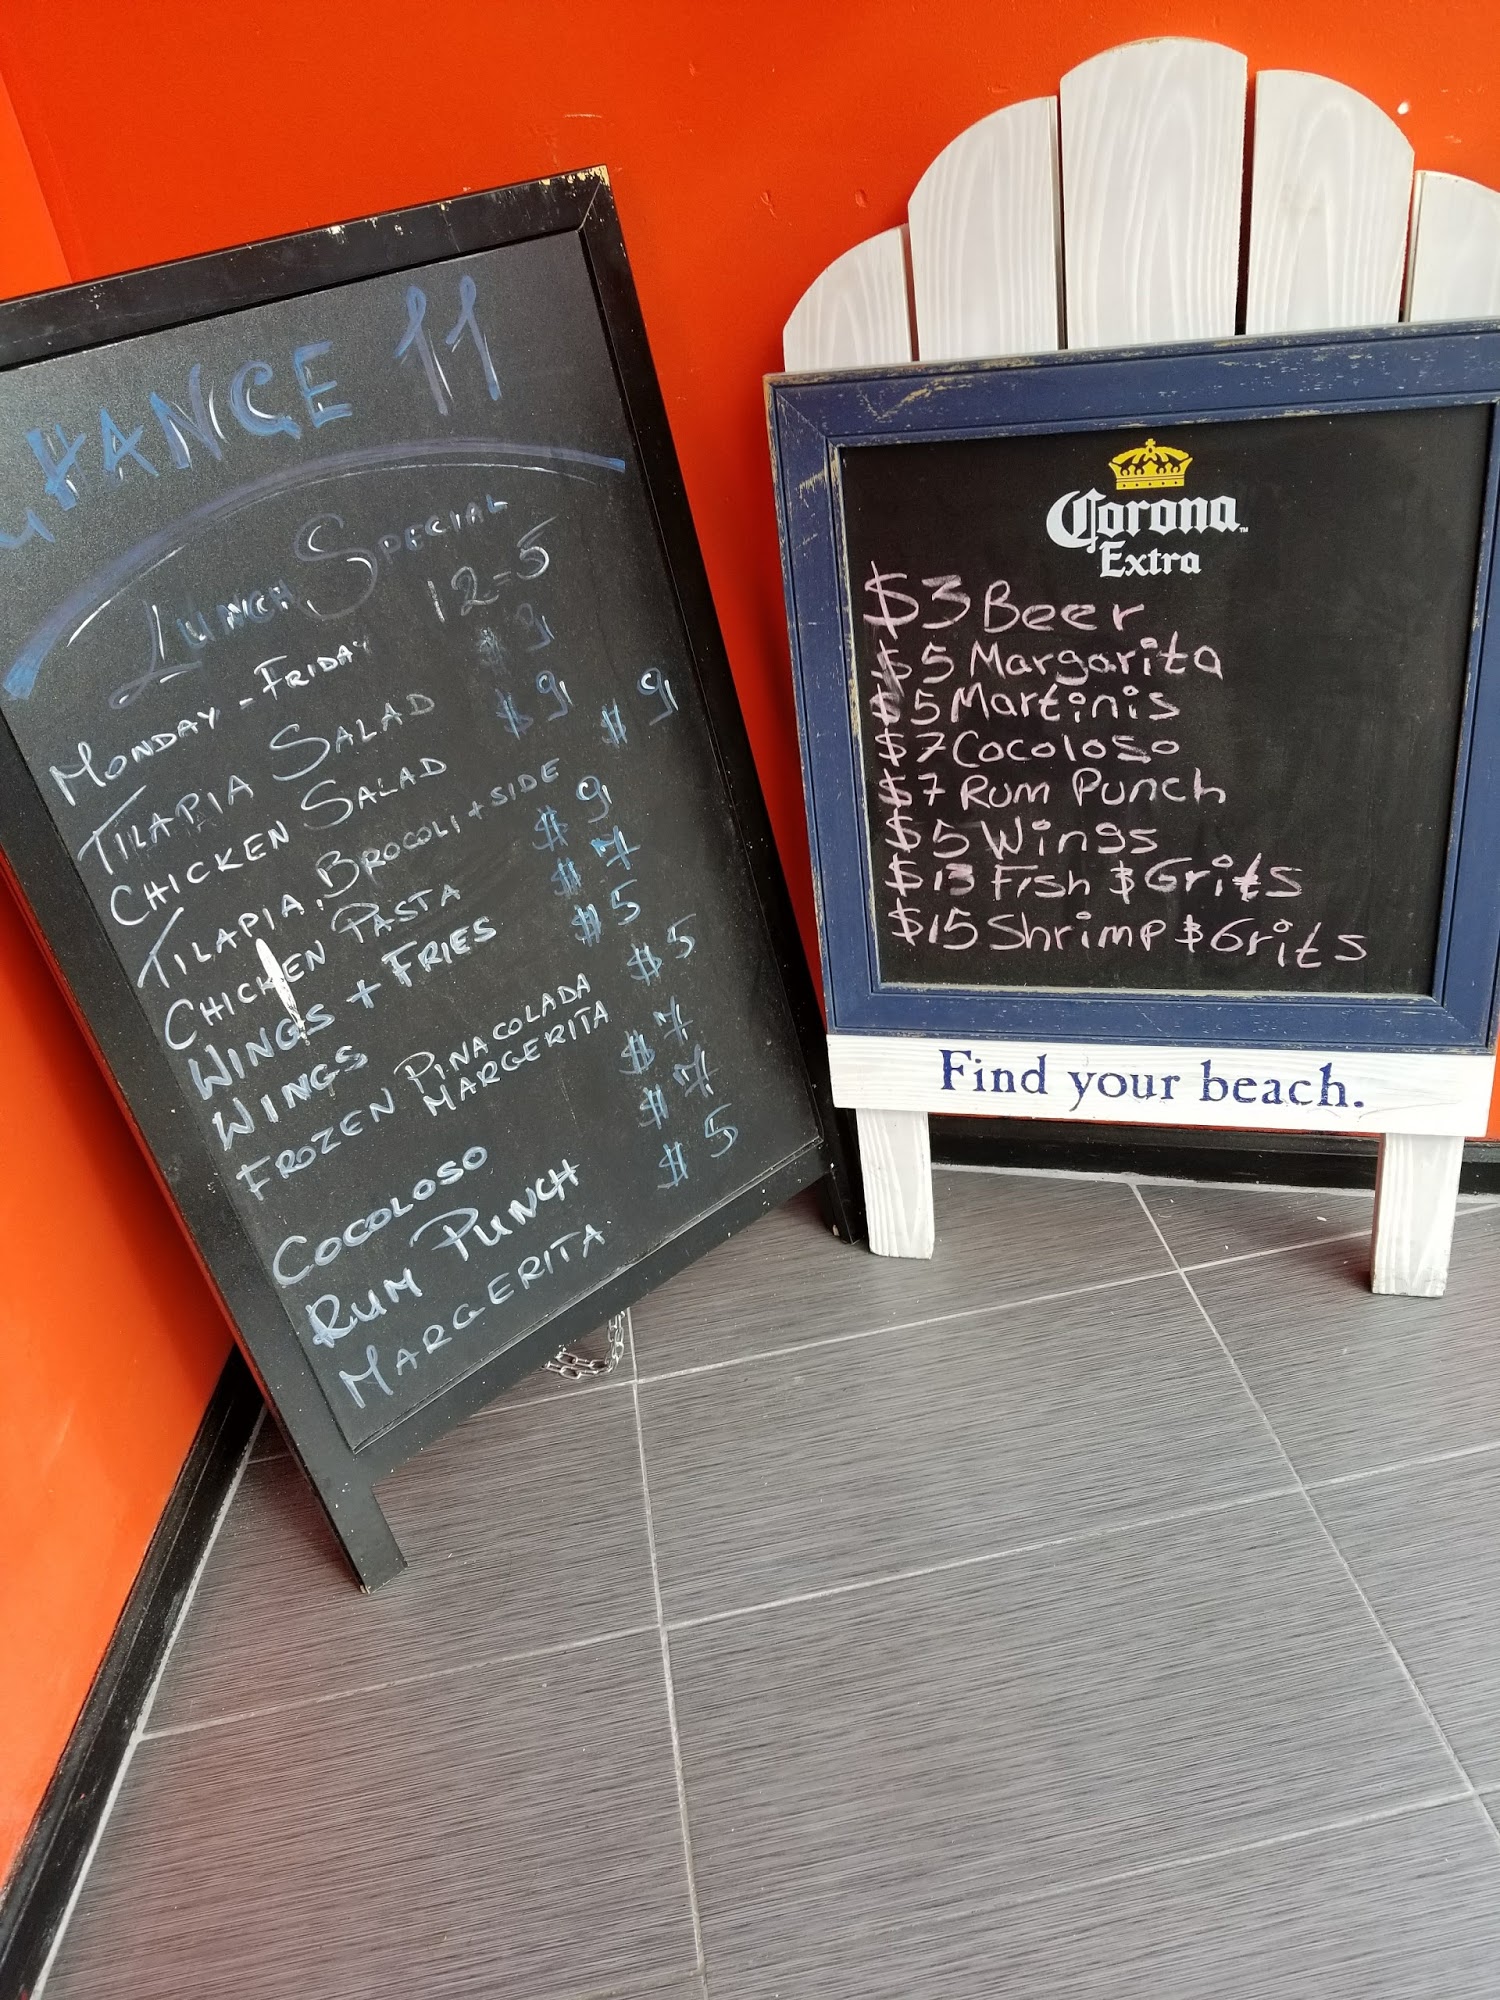 HANGE 11
LUNCH SPECIAL
MONDAY - FRIDAY 12-5
TILAPIA SALAD $9
CHICKEN SALAD $9
TILAPIA, BROCOLI + SIDE $9
CHICKEN PASTA $9
WINGS + FRIES $7
WINGS $5
FROZEN PINACOLADA $5
MARGERITA
COCOLOSO $7
RUM PUNCH $7
MARGERITA $5
Corona
Extra
$3 Beer
$5 Margarita
$5 Martinis
$7 Cocoloso
$7 Rum Punch
$5 Wings
$13 Fish & Grits
$15 Shrimp & Grits
Find your beach.